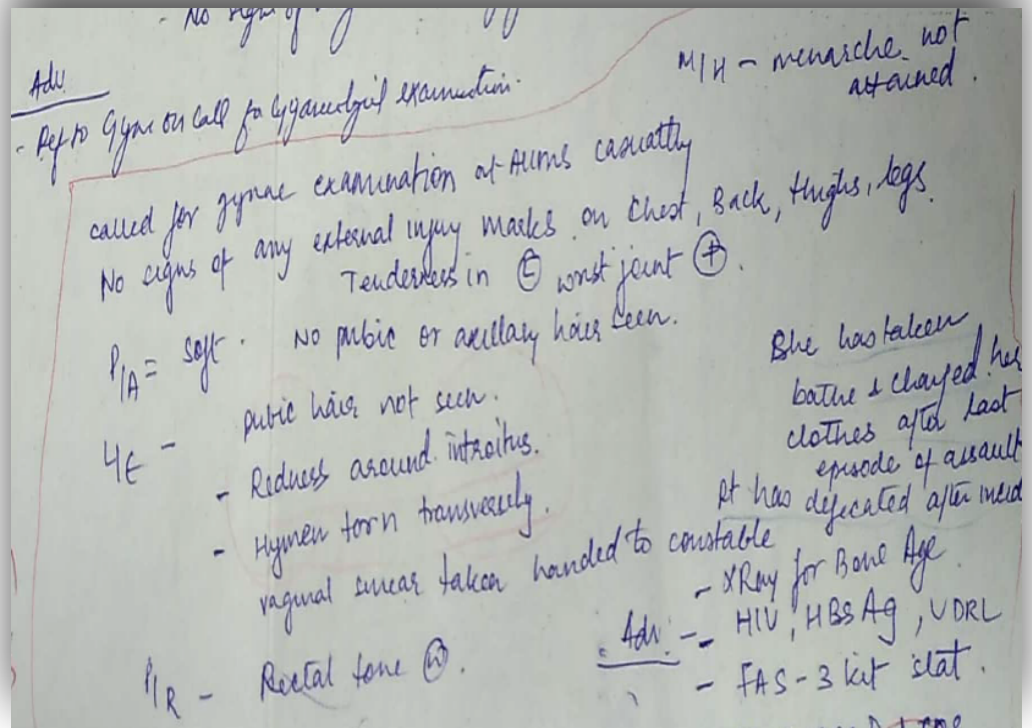 No signs of any
Adv.
- Ref to Gynae on call for Gynaecological examination.
M/H - menarche not
attained.
called for gynae examination at AIIMS casualty
No signs of any external injury marks on Chest, Back, thighs, legs.
Tenderness in wrist joint ⊕.
P/A = soft. No pubic or axillary hairs seen.
pubic hair not seen.
- Redness around introitus.
- Hymen torn transversely.
vaginal smear taken handed to constable
P/R - Rectal tone Ⓝ.
She has taken
bathe & changed her
clothes after last
episode of assault
Pt has defecated after
Adv. - - XRay for Bone Age.
- HIV, HBsAg, VDRL
- FAS-3 kit stat.